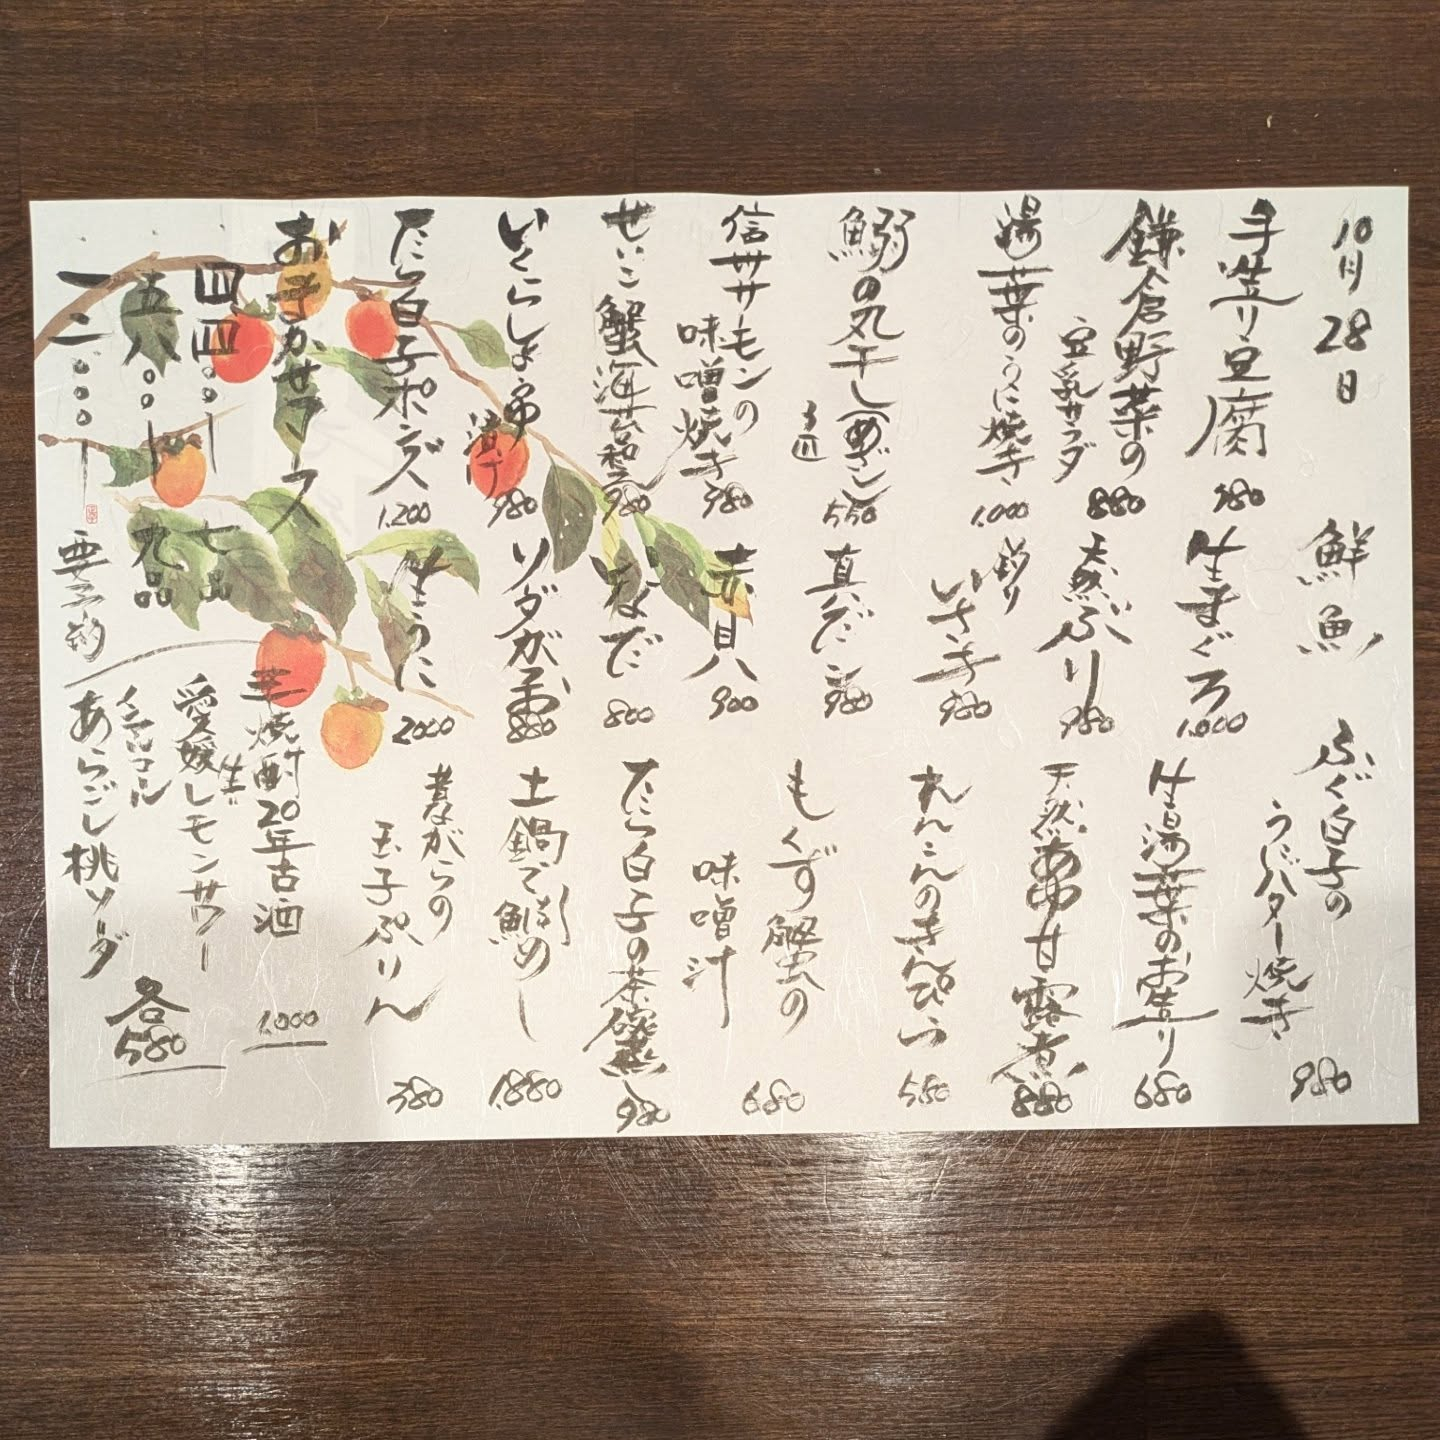 10月28日
鮮魚
ふぐ白子の
うにバター焼き
980
手造り豆腐
980
生まぐろ
1.000
生湯葉のお造り
680
鎌倉野菜の
豆乳サラダ
880
天然ぶり
980
天然あゆ甘露煮
880
湯葉のうに焼き
1.000
釣り
いさき
980
れんこんのきんぴら
580
鰯の丸干し(めざし)
550
真だこ
980
もくず蟹の
味噌汁
680
信州サーモンの
味噌焼き
980
赤目八
900
せいこ蟹海苔和え
980
いなだ
800
たら白子の茶碗蒸し
980
いくらしょうゆ
漬け
980
ソダがつお
880
土鍋で鯛めし
1.880
たら白子ポンズ
1.200
生うに
2000
昔ながらの
玉子ぷりん
380
おまかせコース
四四〇〇ー
七品
五八〇〇ー
九品
一二〇〇〇ー
要予約
芋焼酎20年古酒
1.000
愛媛生レモンサワー
ノンアルコール
あらごし桃ソーダ
各
580